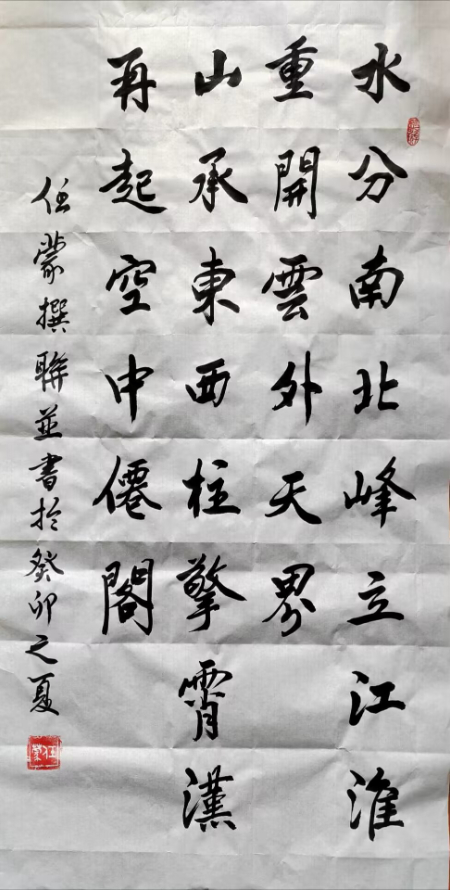 水分南北峰立江淮
重開雲外天界
山承東西柱擎霄漢
再起空中僊閣
任蒙撰聯並書於癸卯之夏
任蒙